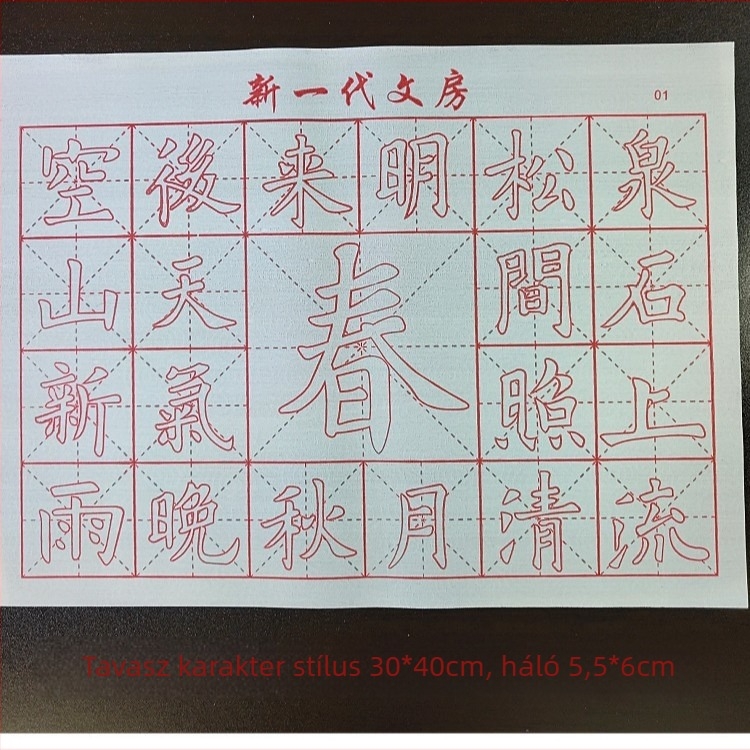 新一代文房
01
空山新雨
後天氣晚
来秋
春
明月
松間照清
泉石上流
Tavasz karakter stílus 30*40cm, háló 5,5*6cm